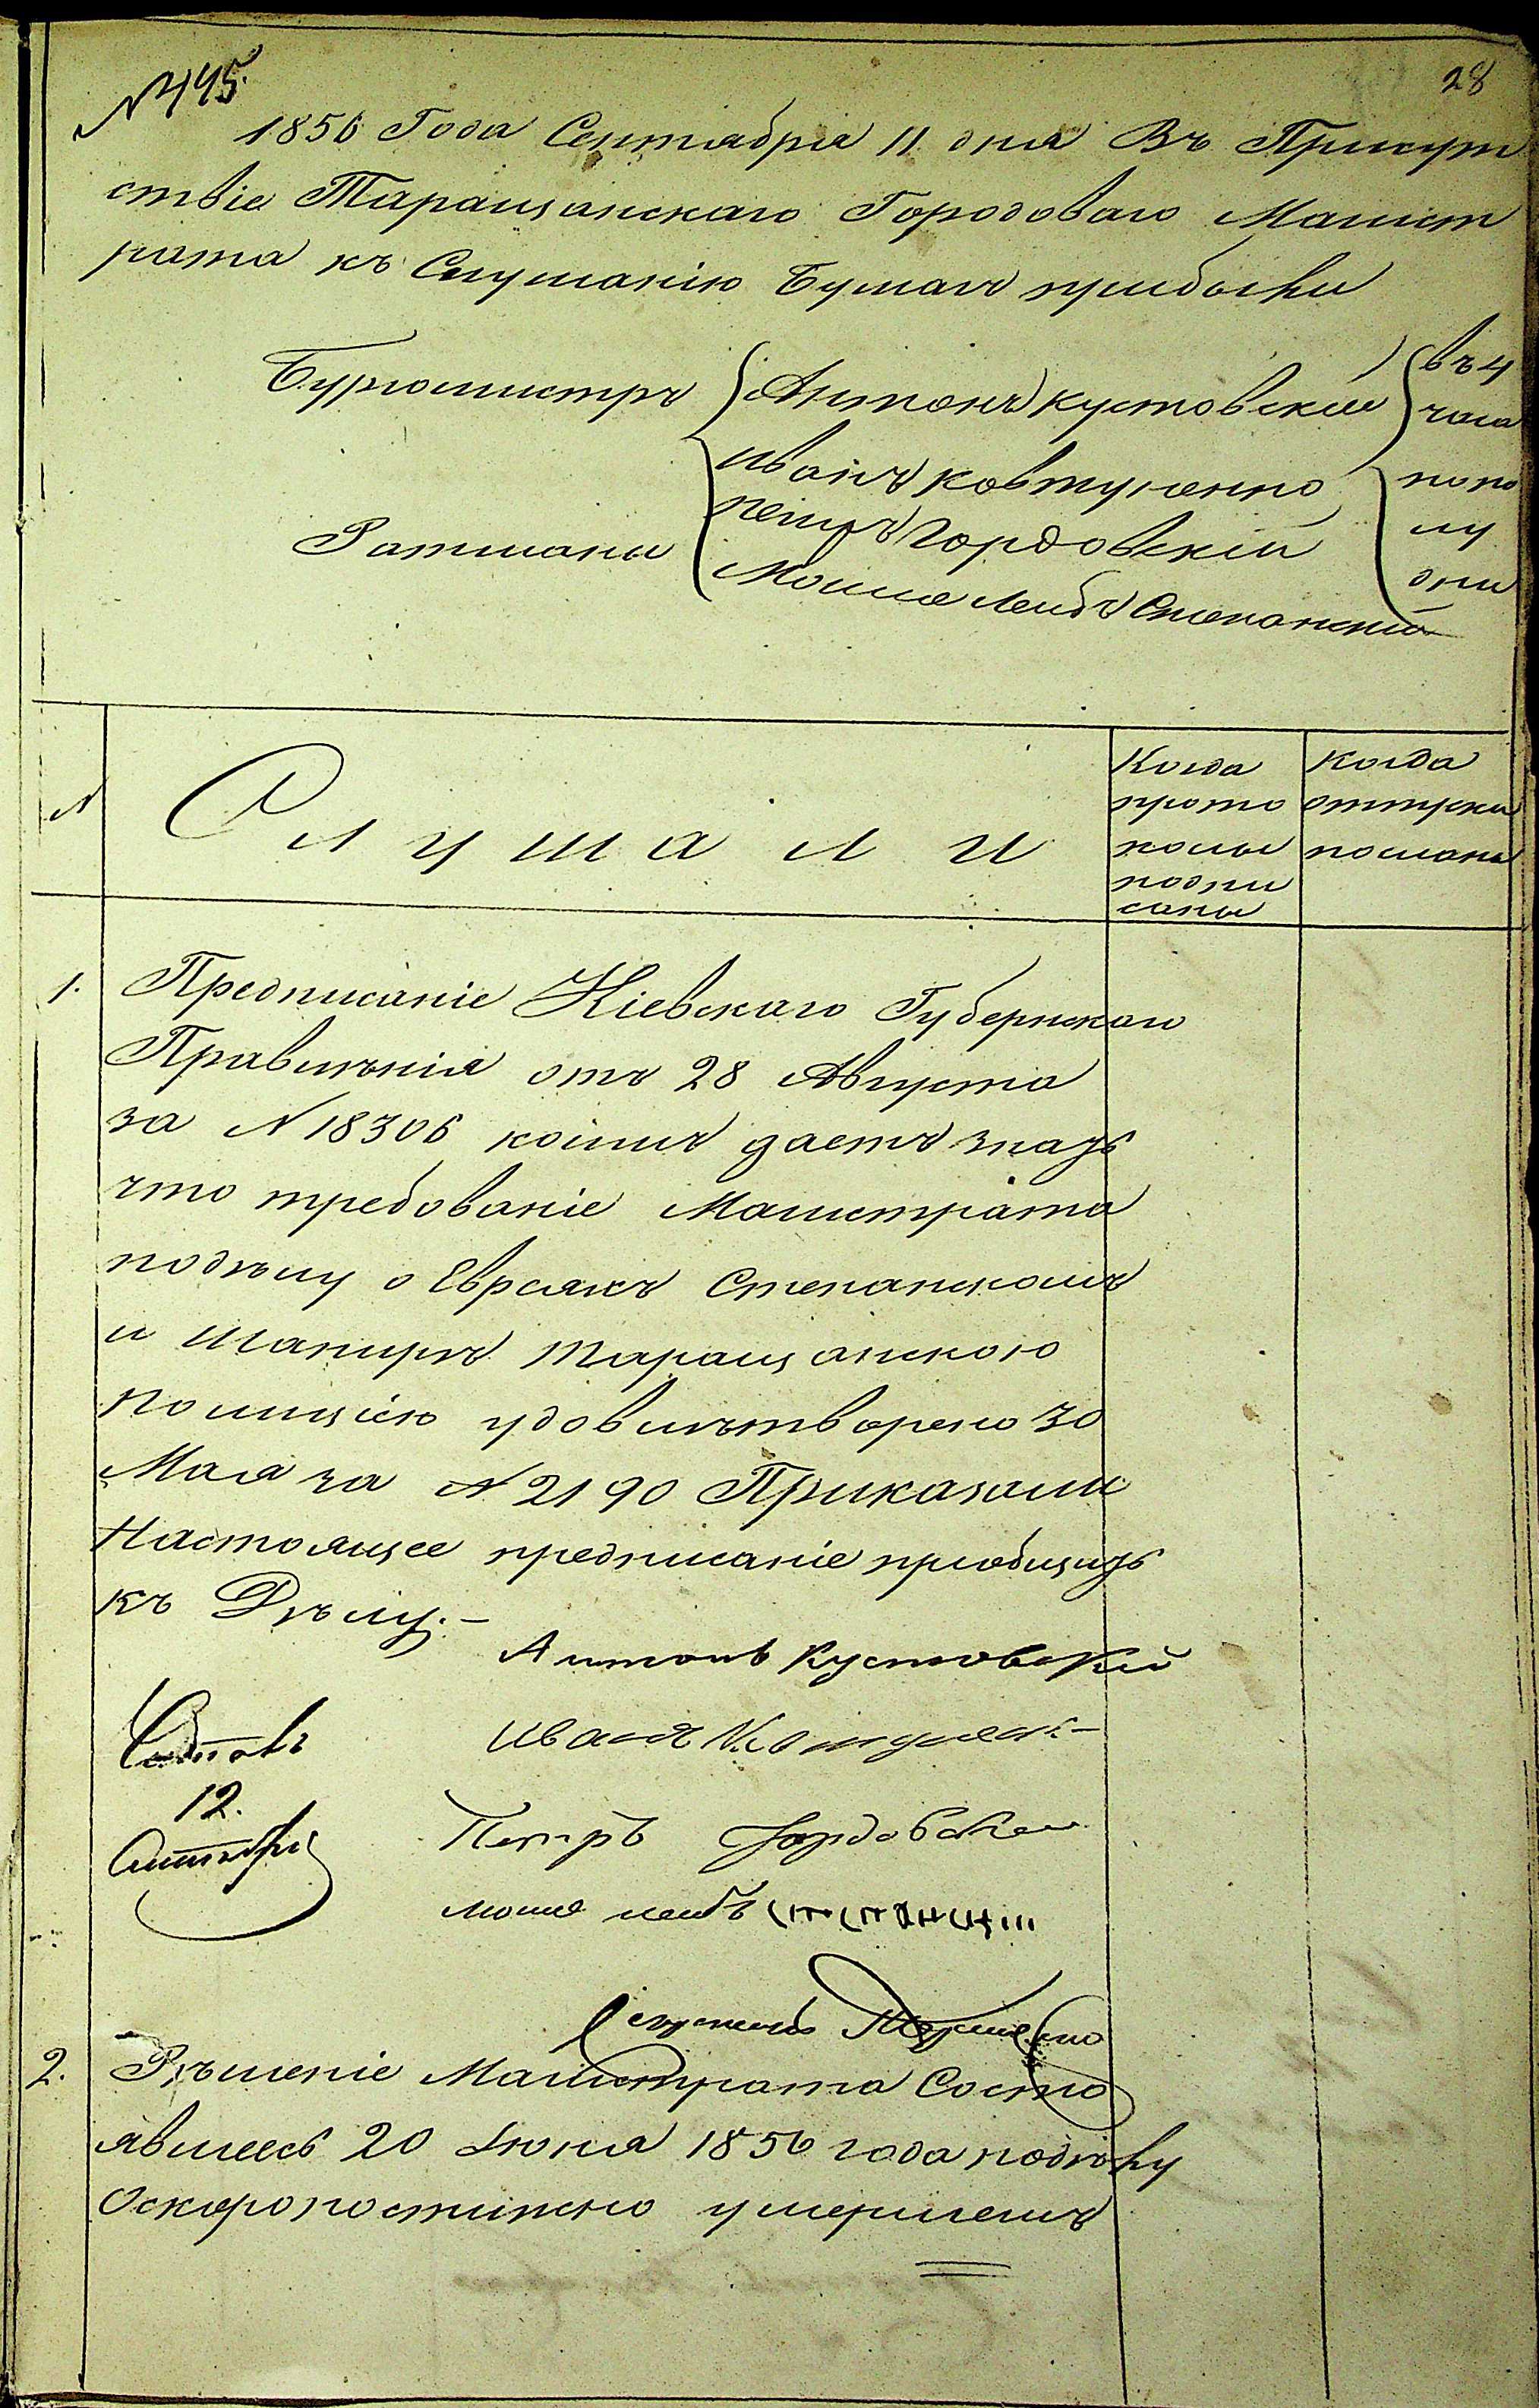 № 445.
28
1856 Года Сентября 11. дня Въ Присут
ствіе Таращанскаго Городоваго Магист
рата къ Слушанію Бумагъ прибыли
Бургомистръ Антонъ Кустовскій въ 4
часа
Иванъ Ковтуненко попо
Ратманы Петръ Гордовскій лу
Мошко Лейбъ Степанскій дни
№ Слушали
Когда
прото
колы
подпи
саны
Когда
отпуски
посланы
1. Предписаніе Кіевскаго Губернскаго
Правленія отъ 28 Августа
за № 18306 коимъ даетъ знать
что требованіе Магистрата
подѣлу о Евреяхъ Степанскомъ
и Шапирѣ Таращанскою
Полиціею удовлетворено 30
Мая за № 2190 Приказали
Настоящее предписаніе пріобщить
къ Дѣлу.-
Антонъ Кустовскій
Иванъ
12.
Петръ Гордовскій
мошко леибъ
2. Рѣшеніе Магистрата Состо
явшееся 20 Іюня 1856 года подѣлу
Оскоропостижно умершемъ